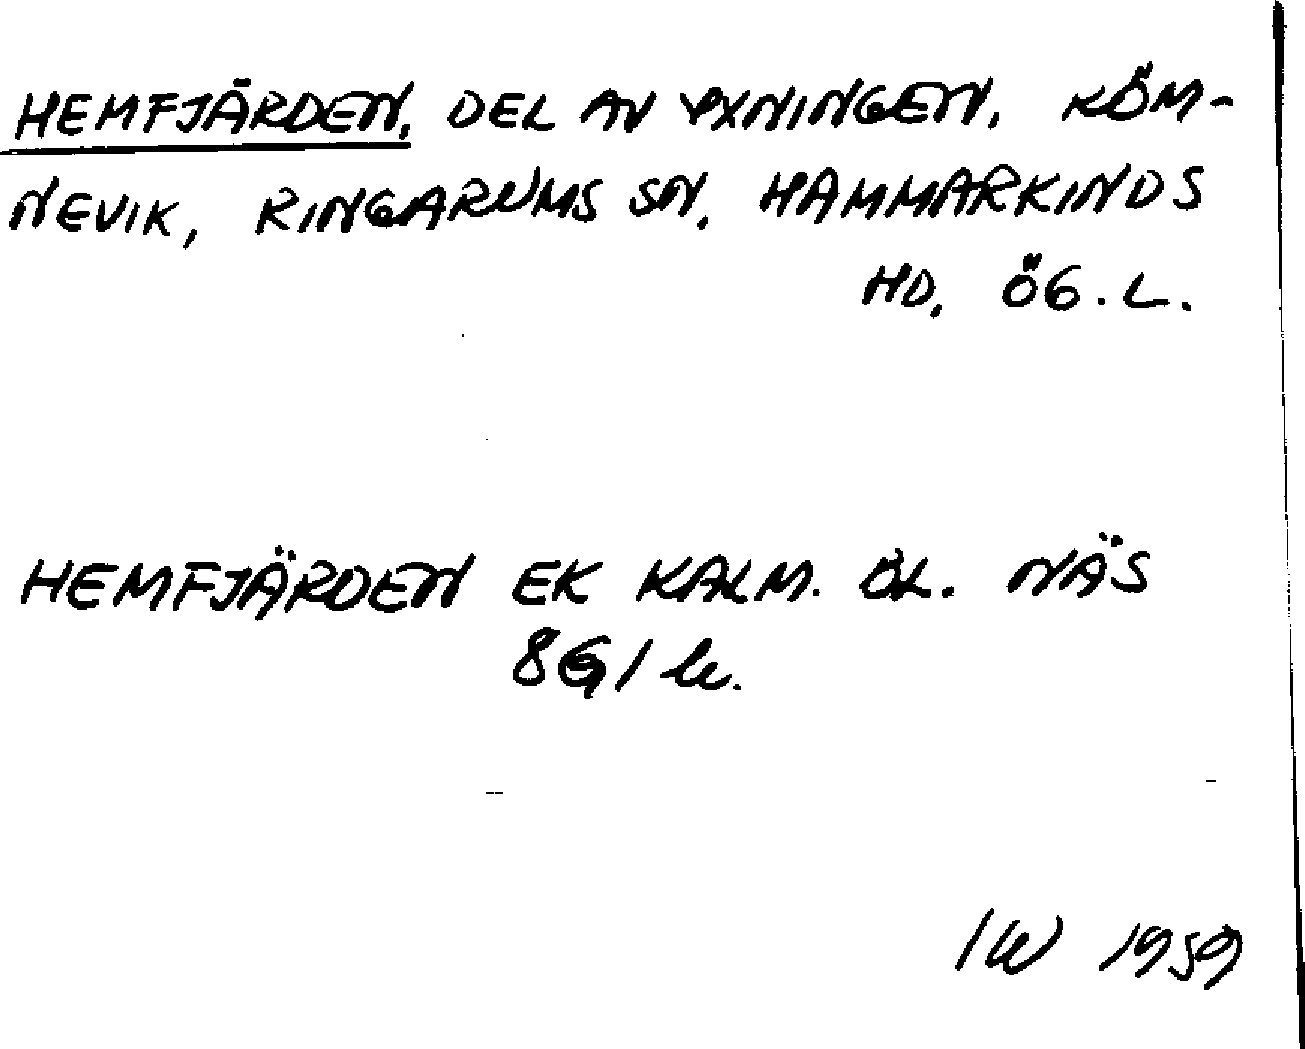 HEMFJÄRDEN, DEL AV YXNINGEN, KÖM-
NEVIK, RINGARUMS SN, HAMMARKINDS
HD, ÖG. L.
HEMFJÄRDEN EK KALM. ÖL. NÄS
IW 1959